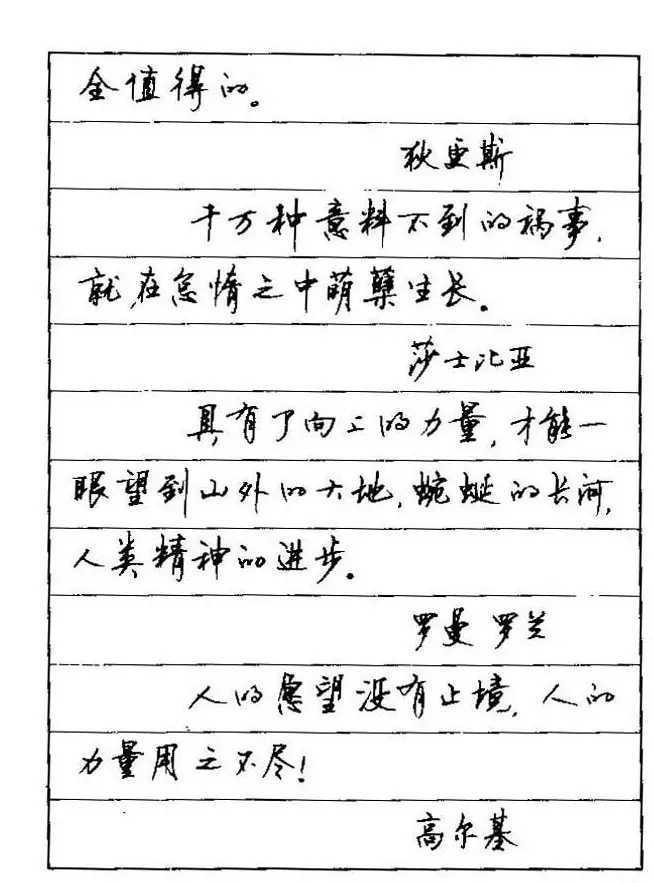 全值得的。
狄更斯
千万种意料不到的祸事,
就在怠惰之中萌孽生长。
莎士比亚
具有了向上的力量,才能一
眼望到山外的大地,蜿蜒的长河,
人类精神的进步。
罗曼 罗兰
人的愿望没有止境,人的
力量用之不尽!
高尔基